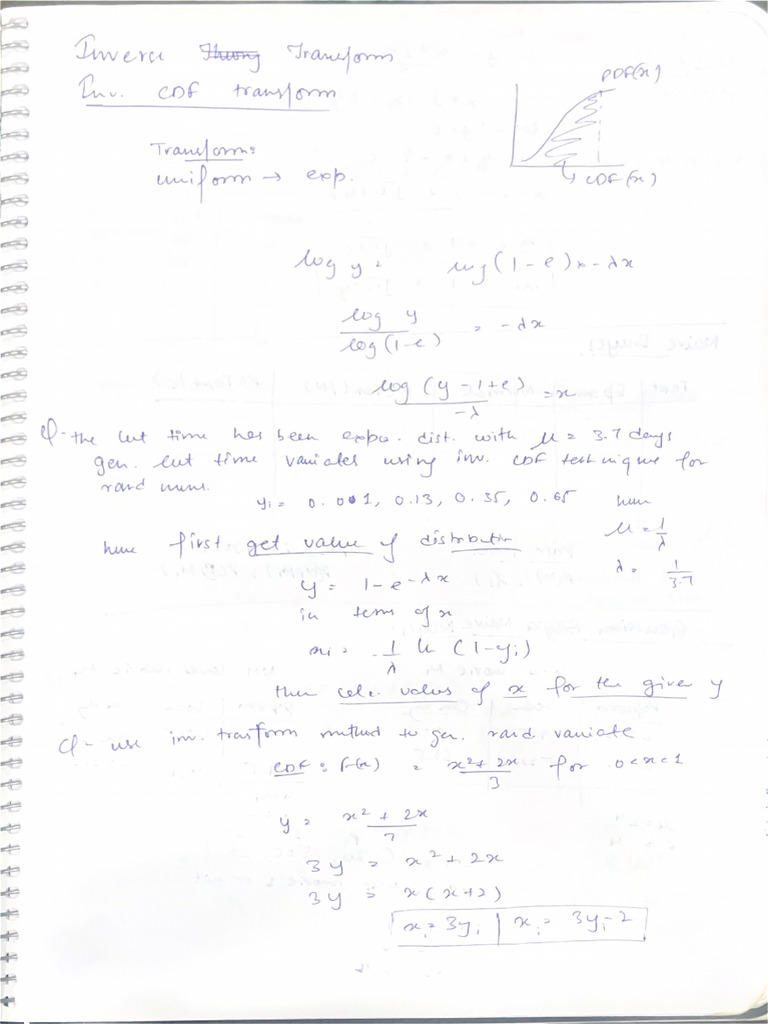 Inverse Thuong Transform
Inv. CDF transform
PDF(x)
CDF(x)
Transform:
uniform → exp.
log y = log(1-e)x-λx
log y / log(1-e) = -λx
log(y-1+e) / -λ = x
Q- the cut time has been expo. dist. with μ = 3.7 days
gen. cut time variates using inv. CDF technique for
rand nums.
yi = 0.001, 0.13, 0.35, 0.65
here
μ = 1/λ
λ = 1/3.7
here first get value of distribution
y = 1-e-λx
in terms of x
xi = -1/λ ln (1-yi)
then calc. values of x for the given y
Q- use inv. trasform method to gen. rand. variate
CDF: F(x) = x²+2x/3 for 0<x<1
y = x²+2x/3
3y = x²+2x
3y = x(x+2)
xi = 3yi | xi = 3yi-2